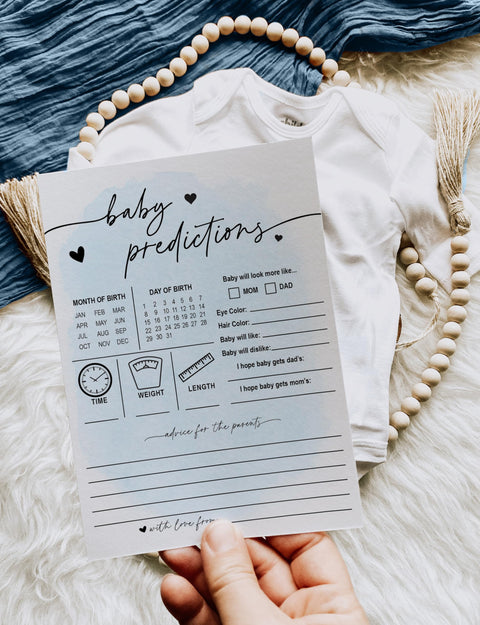 baby
predictions
MONTH OF BIRTH
JAN FEB MAR
APR MAY JUN
JUL AUG SEP
OCT NOV DEC
DAY OF BIRTH
1 2 3 4 5 6 7
8 9 10 11 12 13 14
15 16 17 18 19 20 21
22 23 24 25 26 27 28
29 30 31
Baby will look more like...
MOM DAD
Eye Color:
Hair Color:
Baby will like:
Baby will dislike:
I hope baby gets dad's:
I hope baby gets mom's:
TIME
WEIGHT
LENGTH
advice for the parents
with love from